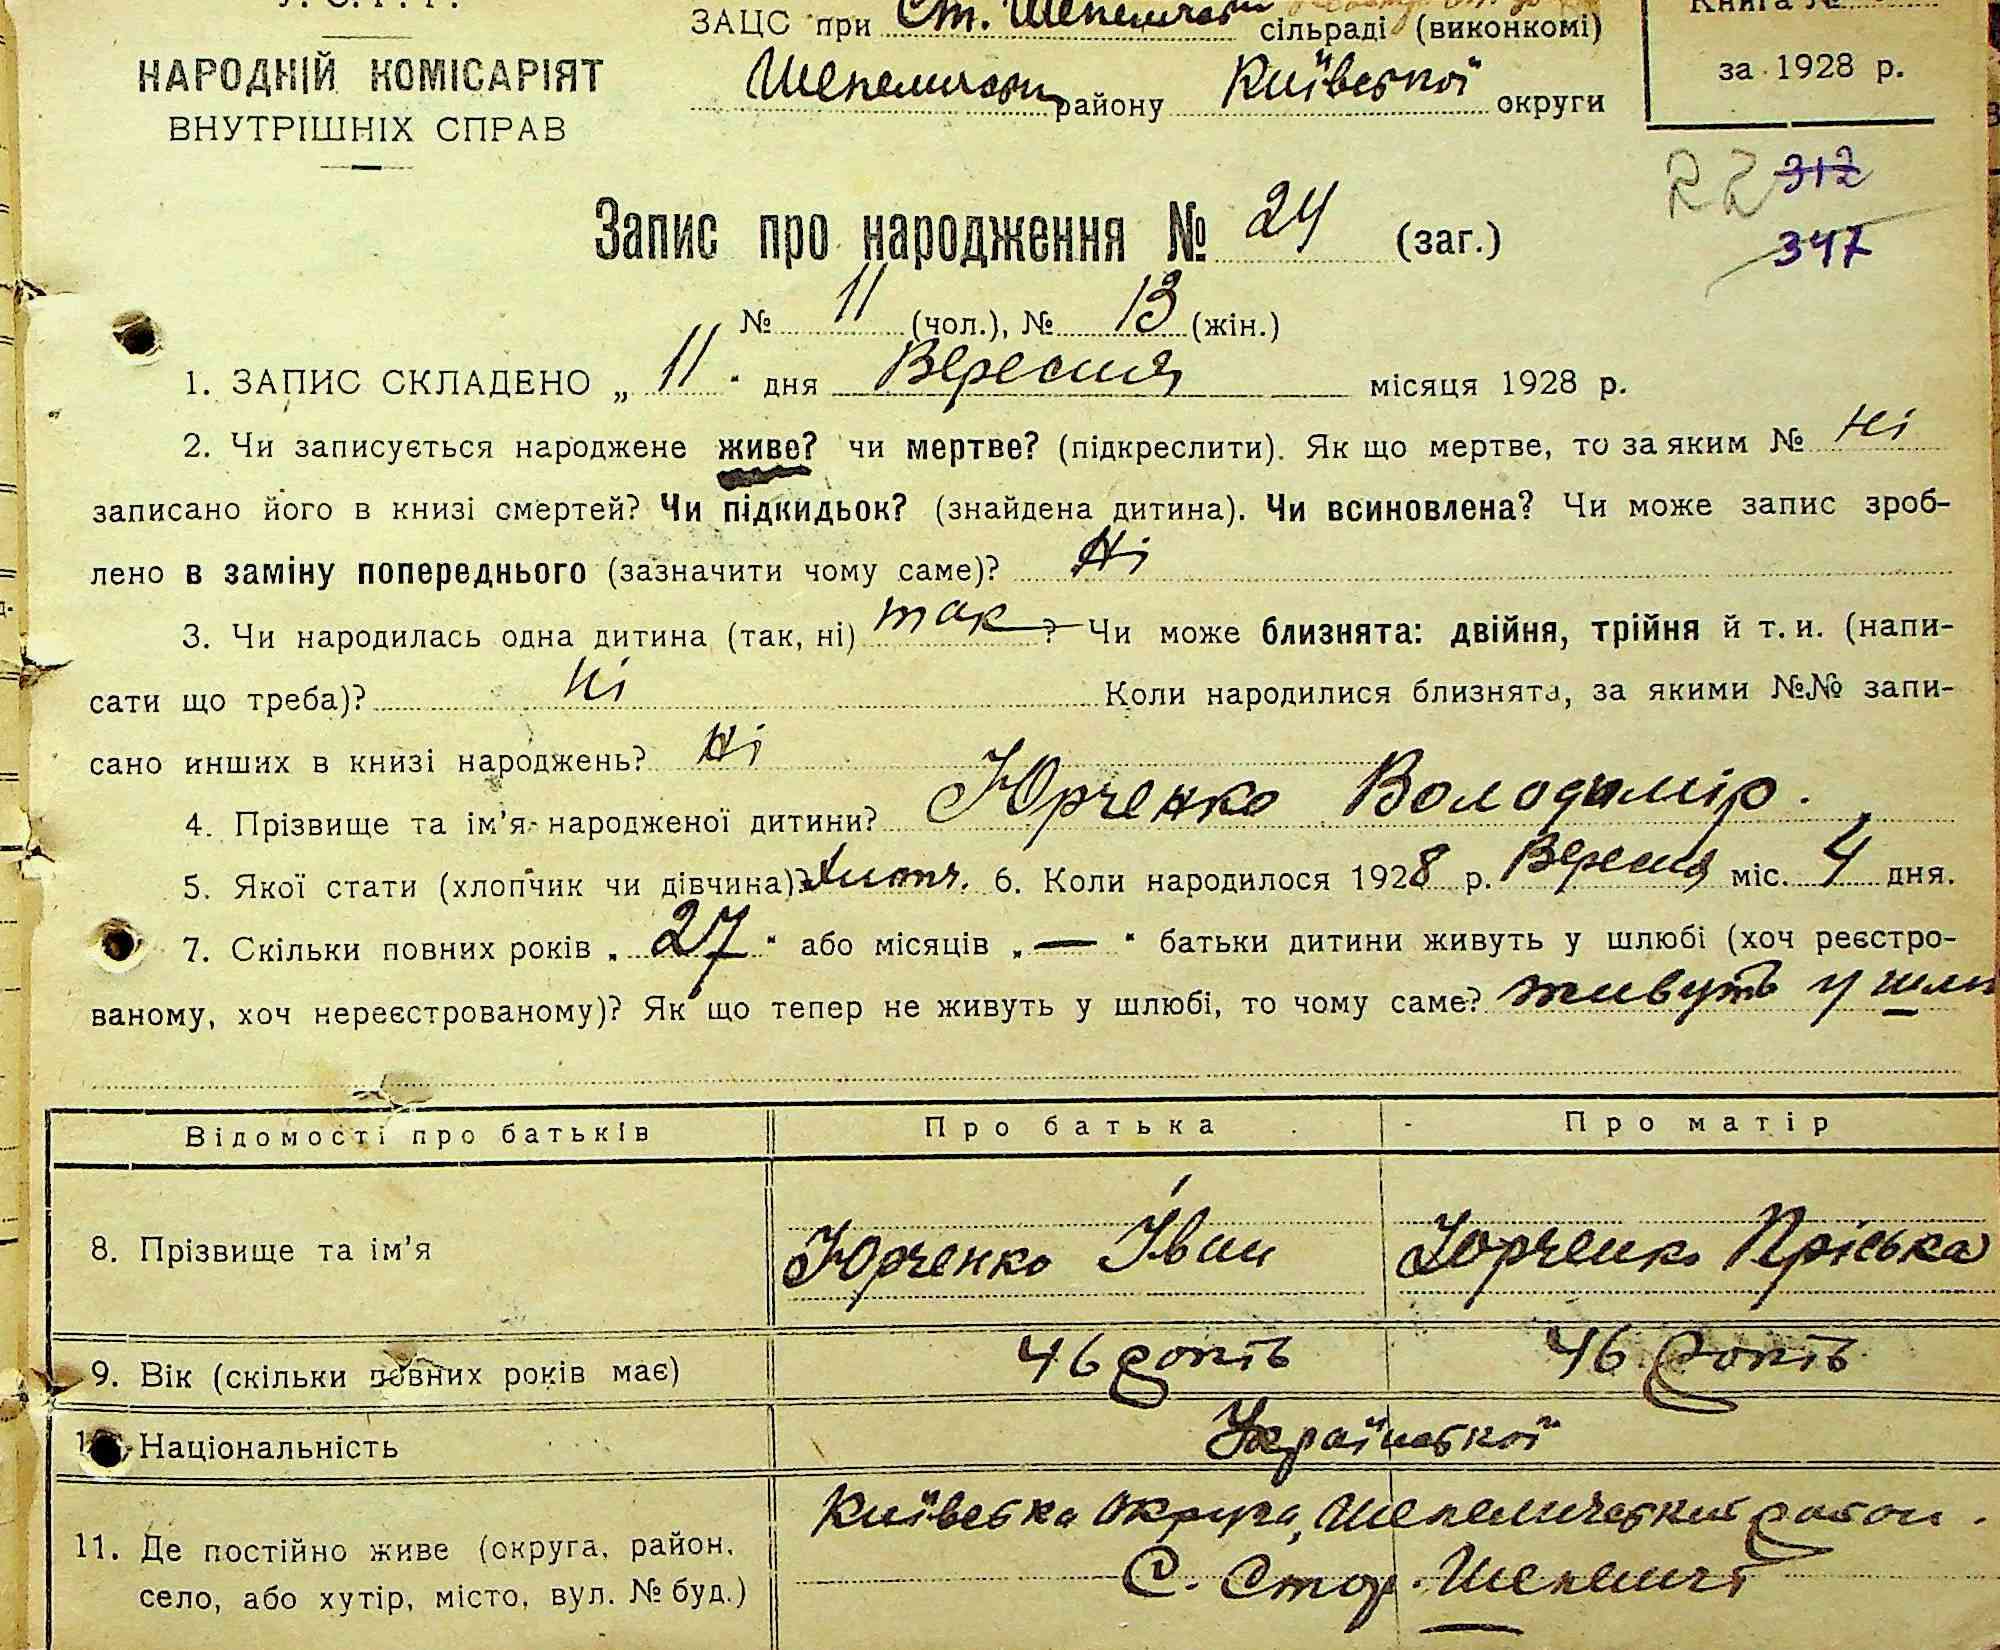 У. С. Р. Р.
НАРОДНІЙ КОМІСАРІЯТ
ВНУТРІШНІХ СПРАВ
ЗАЦС при Ст. Шепелич сільраді (виконкомі)
Шепелич району Київської округи
Книга №
за 1928 р.
312
347
Запис про народження № 24 (заг.)
№ 11 (чол.), № 13 (жін.)
1. ЗАПИС СКЛАДЕНО „ 11 " дня Вересня місяця 1928 р.
2. Чи записується народжене живе? чи мертве? (підкреслити). Як що мертве, то за яким № Ні
записано його в книзі смертей? Чи підкидьок? (знайдена дитина). Чи всиновлена? Чи може запис зроб-
лено в заміну попереднього (зазначити чому саме)? Ні
3. Чи народилась одна дитина (так, ні) так ? Чи може близнята: двійня, трійня й т. и. (напи-
сати що треба)? Ні Коли народилися близнята, за якими №№ запи-
сано инших в книзі народжень? Ні
4. Прізвище та ім'я народженої дитини? Юрченко Володимір.
5. Якої стати (хлопчик чи дівчина)? 6. Коли народилося 1928 р. Вересня міс. 4 дня.
7. Скільки повних років „ 27 " або місяців „ — " батьки дитини живуть у шлюбі (хоч реєстро-
ваному, хоч нереєстрованому)? Як що тепер не живуть у шлюбі, то чому саме? живуть у шлю
Відомості про батьків Про батька Про матір
8. Прізвище та ім'я Юрченко Іван Юрченко Пріська
9. Вік (скільки повних років має) 46 років 46 років
Національність Української
11. Де постійно живе (округа, район, село, або хутір, місто, вул. № буд.)
Київська Округа, Шепелический район.
С. Стар. Шепеличі